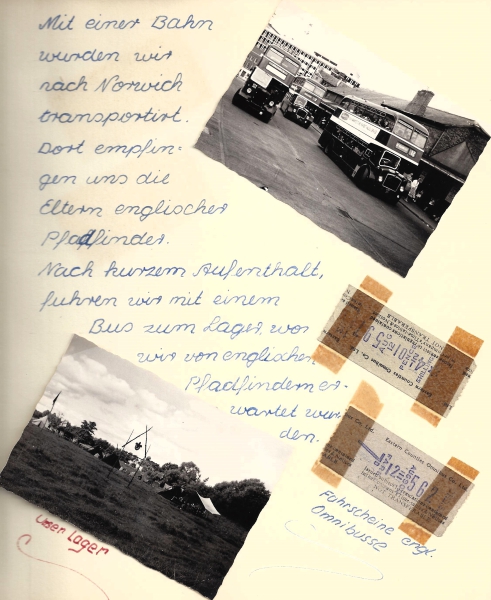 Mit einer Bahn
wurden wir
nach Norwich
transportirt.
Dort empfin=
gen uns die
Eltern englischer
Pfadfinder.
Nach kurzem Aufenthalt,
fuhren wir mit einem
Bus zum Lager, wo
wir von englischen
Pfadfindern er-
wartet wur
den.
Eastern Counties Omnibus Co. Ltd.
NOT TRANSFERABLE
Eastern Counties Omni
Co. Ltd.
Fahrscheine engl.
Omnibusse
Unser Lager